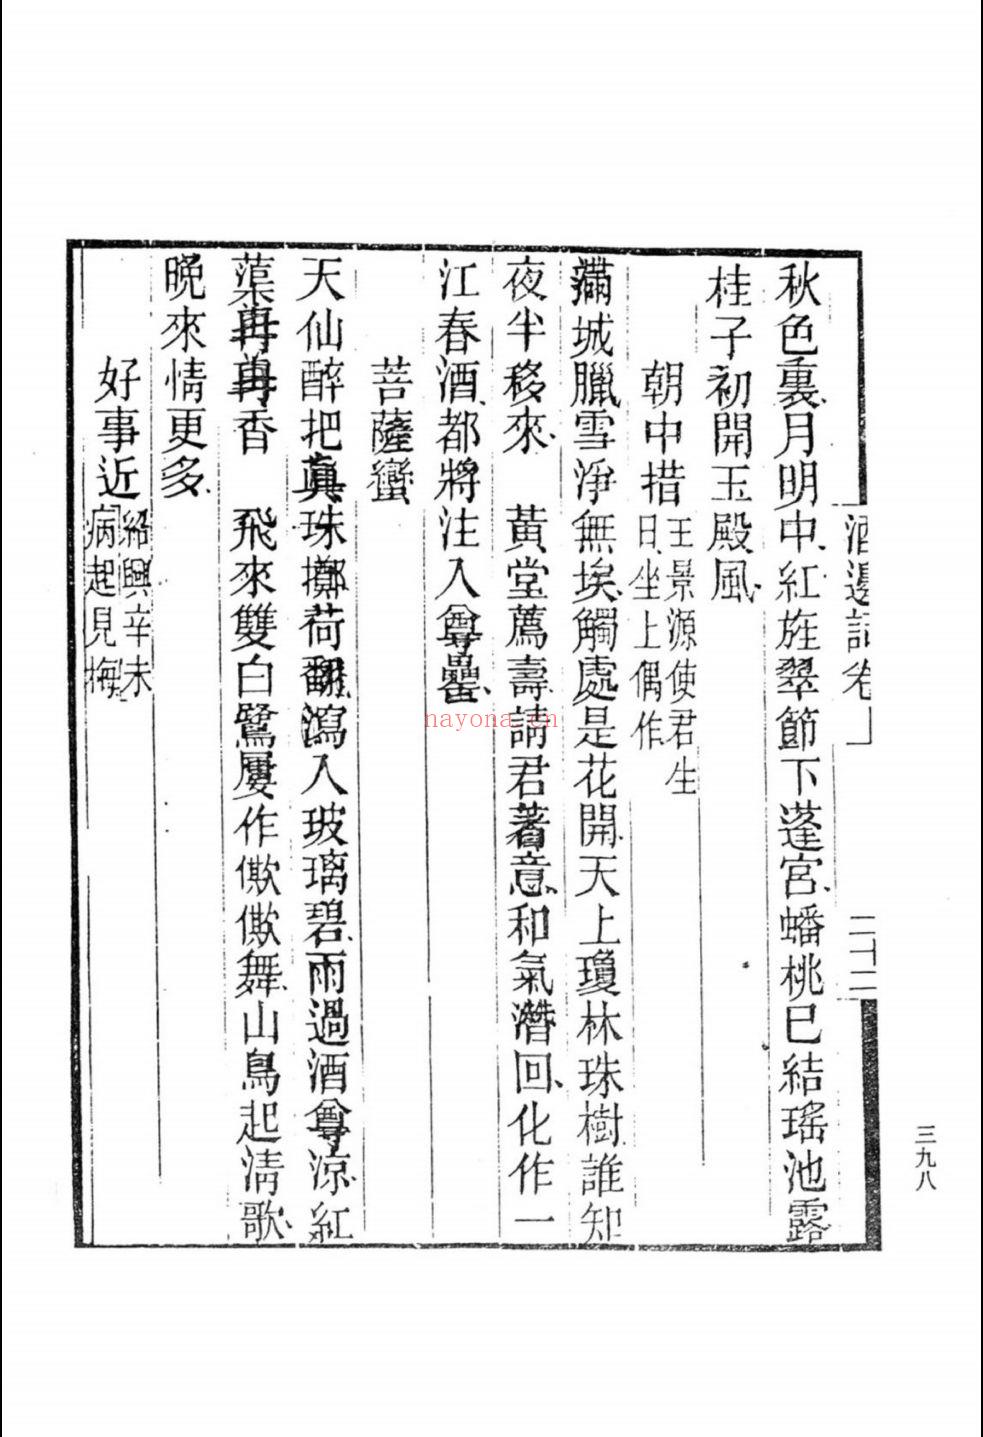 秋色裏月明中紅旌翠節下蓬宮蟠桃已結瑤池露
桂子初開玉殿風
朝中措王景源使君生
日坐上偶作
滿城臘雪淨無埃觸處是花開天上瓊林珠樹誰知
夜半移來 黃堂薦壽請君著意和氣潛回化作一
江春酒都將注入尊罍
菩薩蠻
天仙醉把真珠擲荷翻瀉入玻璃碧雨過酒尊涼紅
蕖冉冉香 飛來雙白鷺屢作僛僛舞山鳥起清歌
晚來情更多
好事近紹興辛未
病起見梅
酒邊詞卷
二十二
三九八
nayona.cn